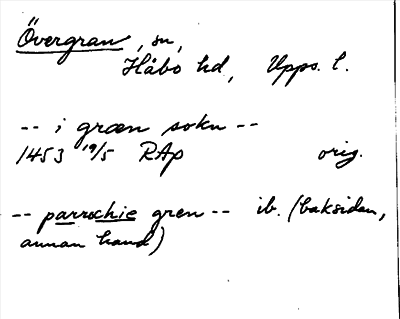 Övergran, sn,
Håbo hd, Upps. l.
-- i græn sokn --
1453 19/5 RAp orig.
-- parrochie gren -- ib. (baksidan,
annan hand)